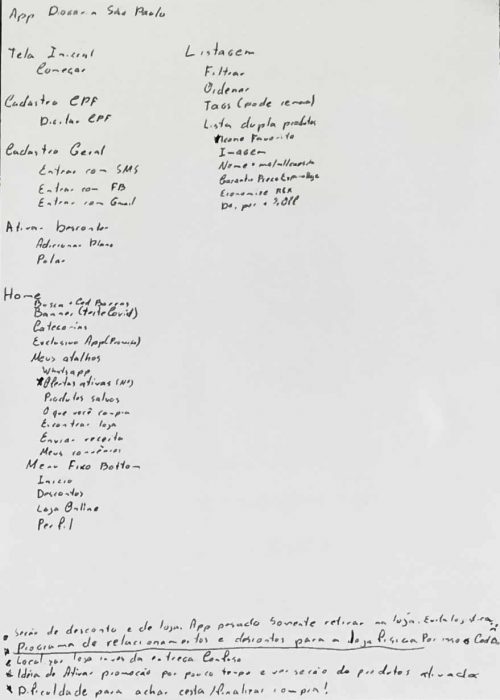 App Drogaria São Paulo
Tela Inicial
Começar
Cadastro CPF
Digitar CPF
Cadastro Geral
Entrar com SMS
Entrar com FB
Entrar com Gmail
Ativar Desconto
Adicionar Plano
Pular
Home
Busca + Cod Barras
Banner (teste Covid)
Categorias
Exclusivo App
Meus atalhos
Whatsapp
Ofertas ativas
Produtos salvos
O que você compra
Encontrar loja
Enviar receita
Meus convênios
Menu Fixo Bottom
Inicio
Descontos
Loja Online
Perfil
Listagem
Filtrar
Ordenar
Tags (pode remover)
Lista dupla produtos
Icone Favorito
Imagem
Nome +
Garante Preço
Economize R$X
De, por + % OFF
de desconto e de loja. App pesado Somente retirar na loja.
* Programa de relacionamentos e descontos para a loja Física Por isso o
* Local por loja da entrega Confuso
* Idéia de Ativar promoção por pouco tempo e ver de produtos ativados
* Dificuldade para achar cesta/finalizar compra!